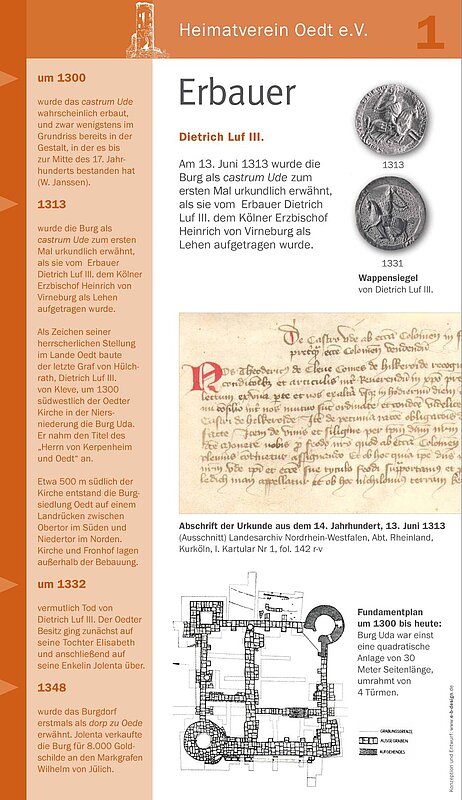 Heimatverein Oedt e.V.
1
um 1300
wurde das castrum Ude
wahrscheinlich erbaut,
und zwar wenigstens im
Grundriss bereits in der
Gestalt, in der es bis
zur Mitte des 17. Jahr-
hunderts bestanden hat
(W. Janssen).
1313
wurde die Burg als
castrum Ude zum ersten
Mal urkundlich erwähnt,
als sie vom Erbauer
Dietrich Luf III. dem Kölner
Erzbischof Heinrich von
Virneburg als Lehen
aufgetragen wurde.
Als Zeichen seiner
herrscherlichen Stellung
im Lande Oedt baute
der letzte Graf von Hülch-
rath, Dietrich Luf III.
von Kleve, um 1300
südwestlich der Oedter
Kirche in der Niers-
niederung die Burg Uda.
Er nahm den Titel des
„Herrn von Kerpenheim
und Oedt“ an.
Etwa 500 m südlich der
Kirche entstand die Burg-
siedlung Oedt auf einem
Landrücken zwischen
Obertor im Süden und
Niedertor im Norden.
Kirche und Fronhof lagen
außerhalb der Bebauung.
um 1332
vermutlich Tod von
Dietrich Luf III. Der Oedter
Besitz ging zunächst auf
seine Tochter Elisabeth
und anschließend auf
seine Enkelin Jolenta über.
1348
wurde das Burgdorf
erstmals als dorp zu Oede
erwähnt. Jolenta verkaufte
die Burg für 8.000 Gold-
schilde an den Markgrafen
Wilhelm von Jülich.
Erbauer
Dietrich Luf III.
Am 13. Juni 1313 wurde die
Burg als castrum Ude zum
ersten Mal urkundlich erwähnt,
als sie vom Erbauer Dietrich
Luf III. dem Kölner Erzbischof
Heinrich von Virneburg als
Lehen aufgetragen wurde.
1313
1331
Wappensiegel
von Dietrich Luf III.
Abschrift der Urkunde aus dem 14. Jahrhundert, 13. Juni 1313
(Ausschnitt) Landesarchiv Nordrhein-Westfalen, Abt. Rheinland,
Kurköln, I. Kartular Nr 1, fol. 142 r-v
Fundamentplan
um 1300 bis heute:
Burg Uda war einst
eine quadratische
Anlage von 30
Meter Seitenlänge,
umrahmt von
4 Türmen.
GRABUNGSGRENZE
AUSGEGRABEN
AUFGEHENDES
Konzeption und Entwurf: www.e-b-design.de